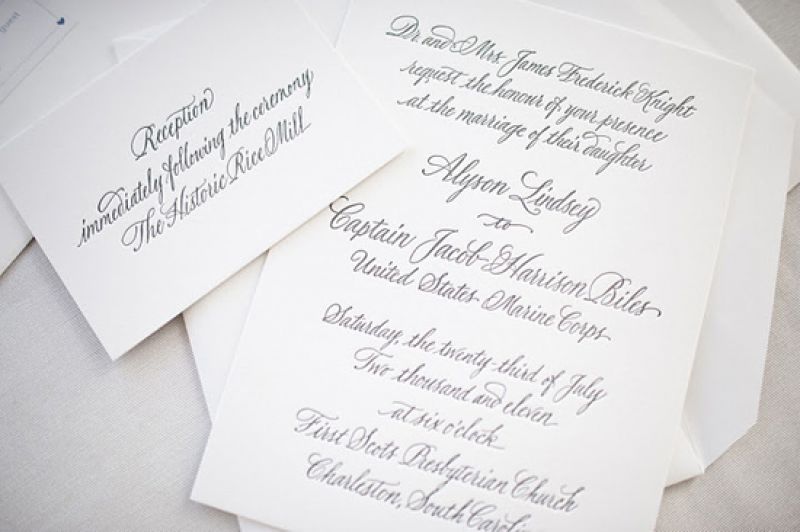 guest
Reception
immediately following the ceremony
The Historic Rice Mill
Dr. and Mrs. James Frederick Knight
request the honour of your presence
at the marriage of their daughter
Alyson Lindsey
to
Captain Jacob Harrison Biles
United States Marine Corps
Saturday, the twenty-third of July
Two thousand and eleven
at six o'clock
First Scots Presbyterian Church
Charleston, South Carolina